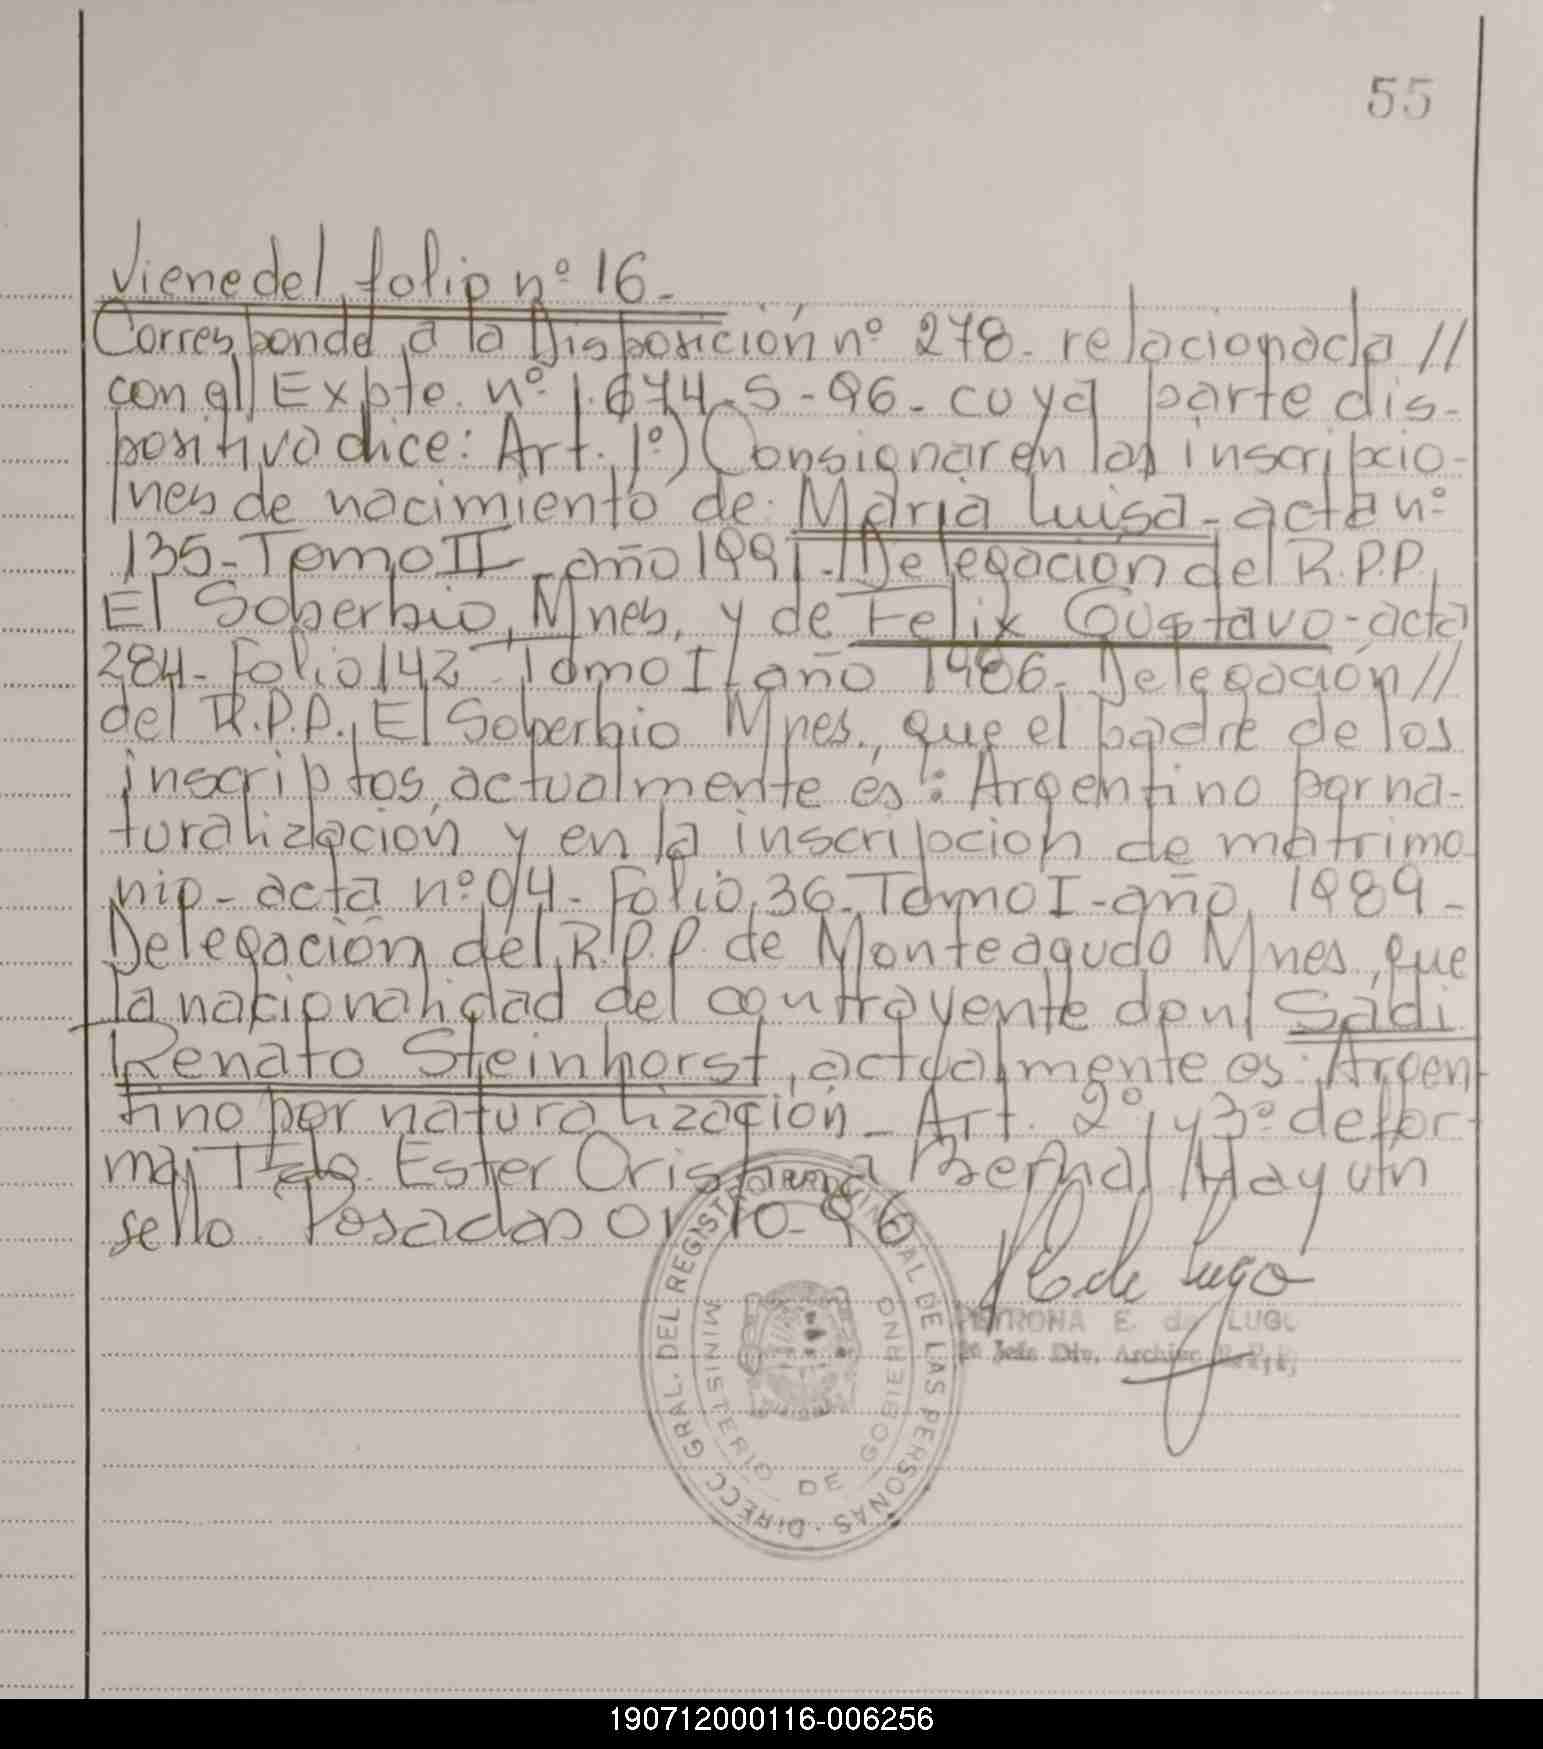 55
Viene del folio nº 16-
Corresponde a la Disposición nº 278- relacionada //
con el Expte. nº 1.674-S-96- cuya parte dis-
positiva dice: Art. 1º) Consignar en las inscripcio-
nes de nacimiento de: María Luisa- acta nº
135- Tomo II- año 1991- Delegación del R.P.P.
El Soberbio, Mnes, y de Felix Gustavo- acta
284- Folio 142- Tomo I- año 1986- Delegación //
del R.P.P., El Soberbio Mnes., que el padre de los
inscriptos, actualmente és: Argentino por na-
turalización y en la inscripción de matrimo-
nio- acta nº 04- Folio 36- Tomo I- año 1989-
Delegación del R.P.P. de Monteagudo Mnes, que
la nacionalidad del contrayente don Sadi
Renato Steinhorst, actualmente es: Argen-
tino por naturalización- Art. 2º y 3º de for-
ma, Ester Cristina Bernal Hay un
sello. Posadas 01-10-96
PETRONA E. de LUGO
Jefe Div. Archivo
DIRECC. GRAL. DEL REGISTRO PROVINCIAL DE LAS PERSONAS
MINISTERIO DE GOBIERNO
190712000116-006256